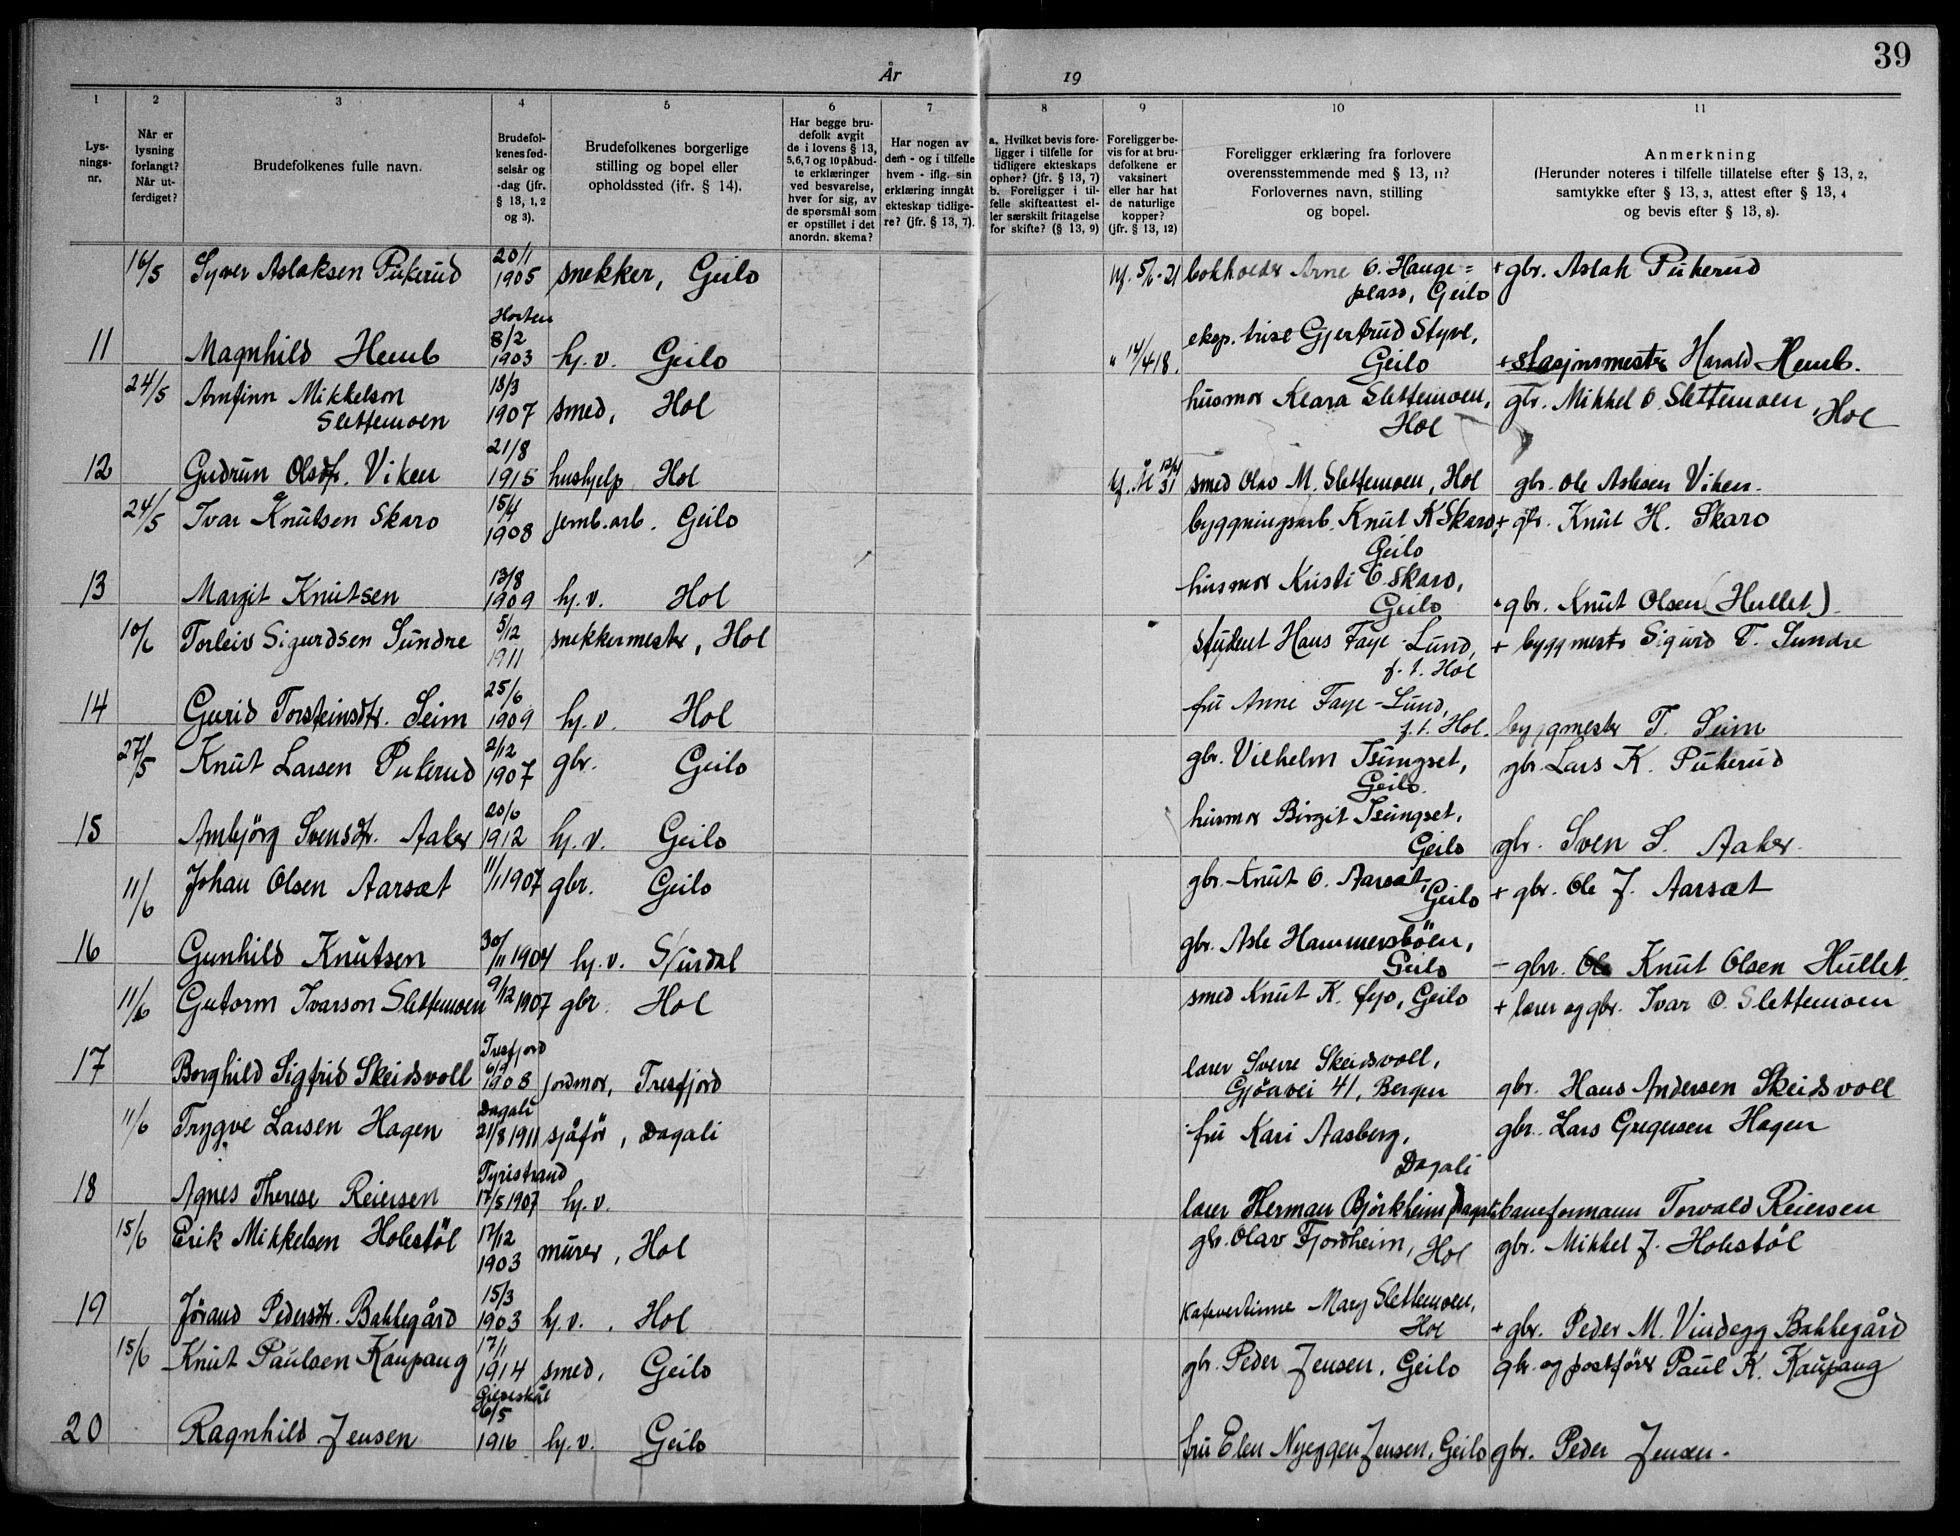 39
År 19
1 2 3 4 5 6 7 8 9 10 11
Lys-
nings-
nr.
Når er
lysning
forlangt?
Når ut-
ferdiget?
Brudefolkenes fulle navn.
Brudefol-
kenes fød-
selsår og
-dag (jfr.
§ 13, 1, 2
og 3).
Brudefolkenes borgerlige
stilling og bopel eller
opholdssted (ifr. § 14).
Har begge bru-
defolk avgit
de i lovens § 13,
5,6,7 og 10 påbud-
te erklæringer
ved besvarelse,
hver for sig, av
de spørsmål som
er opstillet i det
anordn. skema?
Har nogen av
dem - og i tilfelle
hvem - iflg. sin
erklæring inngåt
ekteskap tidlige-
re? (jfr. § 13, 7).
a. Hvilket bevis fore-
ligger i tilfelle for
tidligere ekteskaps
ophør? (jfr. § 13, 7)
b. Foreligger i til-
felle skifteattest el-
ler særskilt fritagelse
for skifte? (§ 13, 9)
Foreligger be-
vis for at bru-
defolkene er
vaksinert
eller har hat
de naturlige
kopper?
(jfr. § 13, 12)
Foreligger erklæring fra forlovere
overensstemmende med § 13, 11?
Forlovernes navn, stilling
og bopel.
Anmerkning
(Herunder noteres i tilfelle tillatelse efter § 13, 2,
samtykke efter § 13, 3, attest efter § 13, 4
og bevis efter § 13, 8).
16/5 Syver Aslaksen Pukerud 20/1 1905 snekker, Geilo 5/6-21 bokholder Arne O. Hauge=
plass, Geilo + gbr. Aslak Pukerud
11 Magnhild Hemb Horten 8/2 1903 hj.v. Geilo " 14/4 18. eksp.trise Gjertrud Styve,
Geilo + stasjonsmester Harald Hemb.
24/5 Arnfinn Mikkelson
Slettemoen 18/3 1907 smed, Hol husmor Klara Slettemoen,
Hol gbr. Mikkel O. Slettemoen, Hol
12 Gudrun Olsdtr. Viken 21/8 1915 hushjelp Hol Ål 31 smed Olav M. Slettemoen, Hol gbr. Ole Aslesen Viken.
24/5 Ivar Knutsen Skaro 15/4 1908 jernb.arb. Geilo byggningsarb. Knut K Skaro,
Geilo + gbr. Knut H. Skaro
13 Margit Knutsen 13/8 1909 hj.v. Hol husmor Kristi E Skaro,
Geilo + gbr. Knut Olsen (Hullet)
10/6 Torleiv Sigurdsen Sundre 5/12 1911 snekkermester, Hol student Hans Faye-Lund,
f.t. Hol + byggmester Sigurd T. Sundre
14 Gurid Torsteinsdtr. Seim 25/6 1909 hj.v. Hol fru Anne Faye-Lund,
f.t. Hol. byggmester T. Seim
27/5 Knut Larsen Pukerud 2/12 1907 gbr. Geilo gbr. Vilhelm Tsungset,
Geilo. gbr. Lars K. Pukerud
15 Ambjörg Svensdtr. Aaker 20/6 1912 hj.v. Geilo husmor Birgit Tsungset,
Geilo gbr. Sven S. Aaker.
11/6 Johan Olsen Aarsæt 11/1 1907 gbr. Geilo gbr. Knut O. Aarsæt,
Geilo + gbr. Ole J. Aarsæt
16 Gunhild Knutsen 30/11 1904 hj.v. S/urdal gbr. Asle Hammersböen,
Geilo - gbr. Knut Olsen Hullet.
11/6 Gutorm Ivarson Slettemoen 9/12 1907 gbr. Hol smed Knut K. Geilo + lærer og gbr. Ivar O. Slettemoen
17 Borghild Sigfrid Skeidsvoll Tresfjord 1908 jordmor, Tresfjord lærer Sverre Skeidsvoll,
Gjöavei 41, Bergen gbr. Hans Andersen Skeidsvoll
11/6 Trygve Larsen Hagen Dagali 21/8 1911 sjåför, Dagali fru Kari Aasberg,
Dagali gbr. Lars Gregersen Hagen
18 Agnes Therese Reiersen Tyristrand 17/5 1907 hj.v. lærer Herman Björkheim Dagali baneformann Torvald Reiersen
15/6 Erik Mikkelsen Holestöl 17/12 1903 murer, Hol gbr. Olav Fjordheim, Hol gbr. Mikkel J. Holestöl
19 Jörand Pedersdtr. Bakkegård 15/3 1903 hj.v. Hol kafevertinne Mary Slettemoen,
Hol + gbr. Peder M. Vindegg Bakkegård
15/6 Knut Paulsen Kaupang 17/1 1914 smed, Geilo gbr. Peder Jensen, Geilo gbr. og postförer Paul K. Kaupang
20 Ragnhild Jensen Gildeskål 6/5 1916 hj.v. Geilo fru Elen Nyeggen Jensen, Geilo gbr. Peder Jensen.